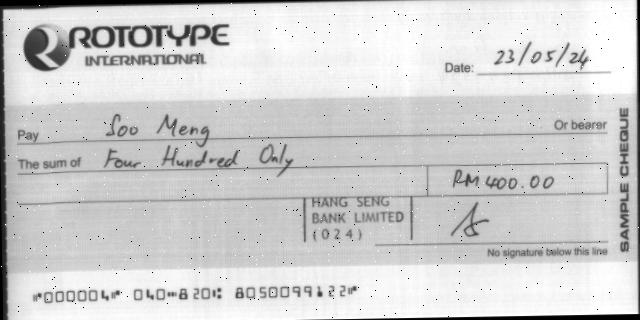 ROTOTYPE
INTERNATIONAL
Date: 23/05/24
Pay Soo Meng Or bearer
The sum of Four Hundred Only
RM 400.00
HANG SENG
BANK LIMITED
(024)
No signature below this line
SAMPLE CHEQUE
⑈000004⑈ 040⑉820⑆ 8050099122⑈